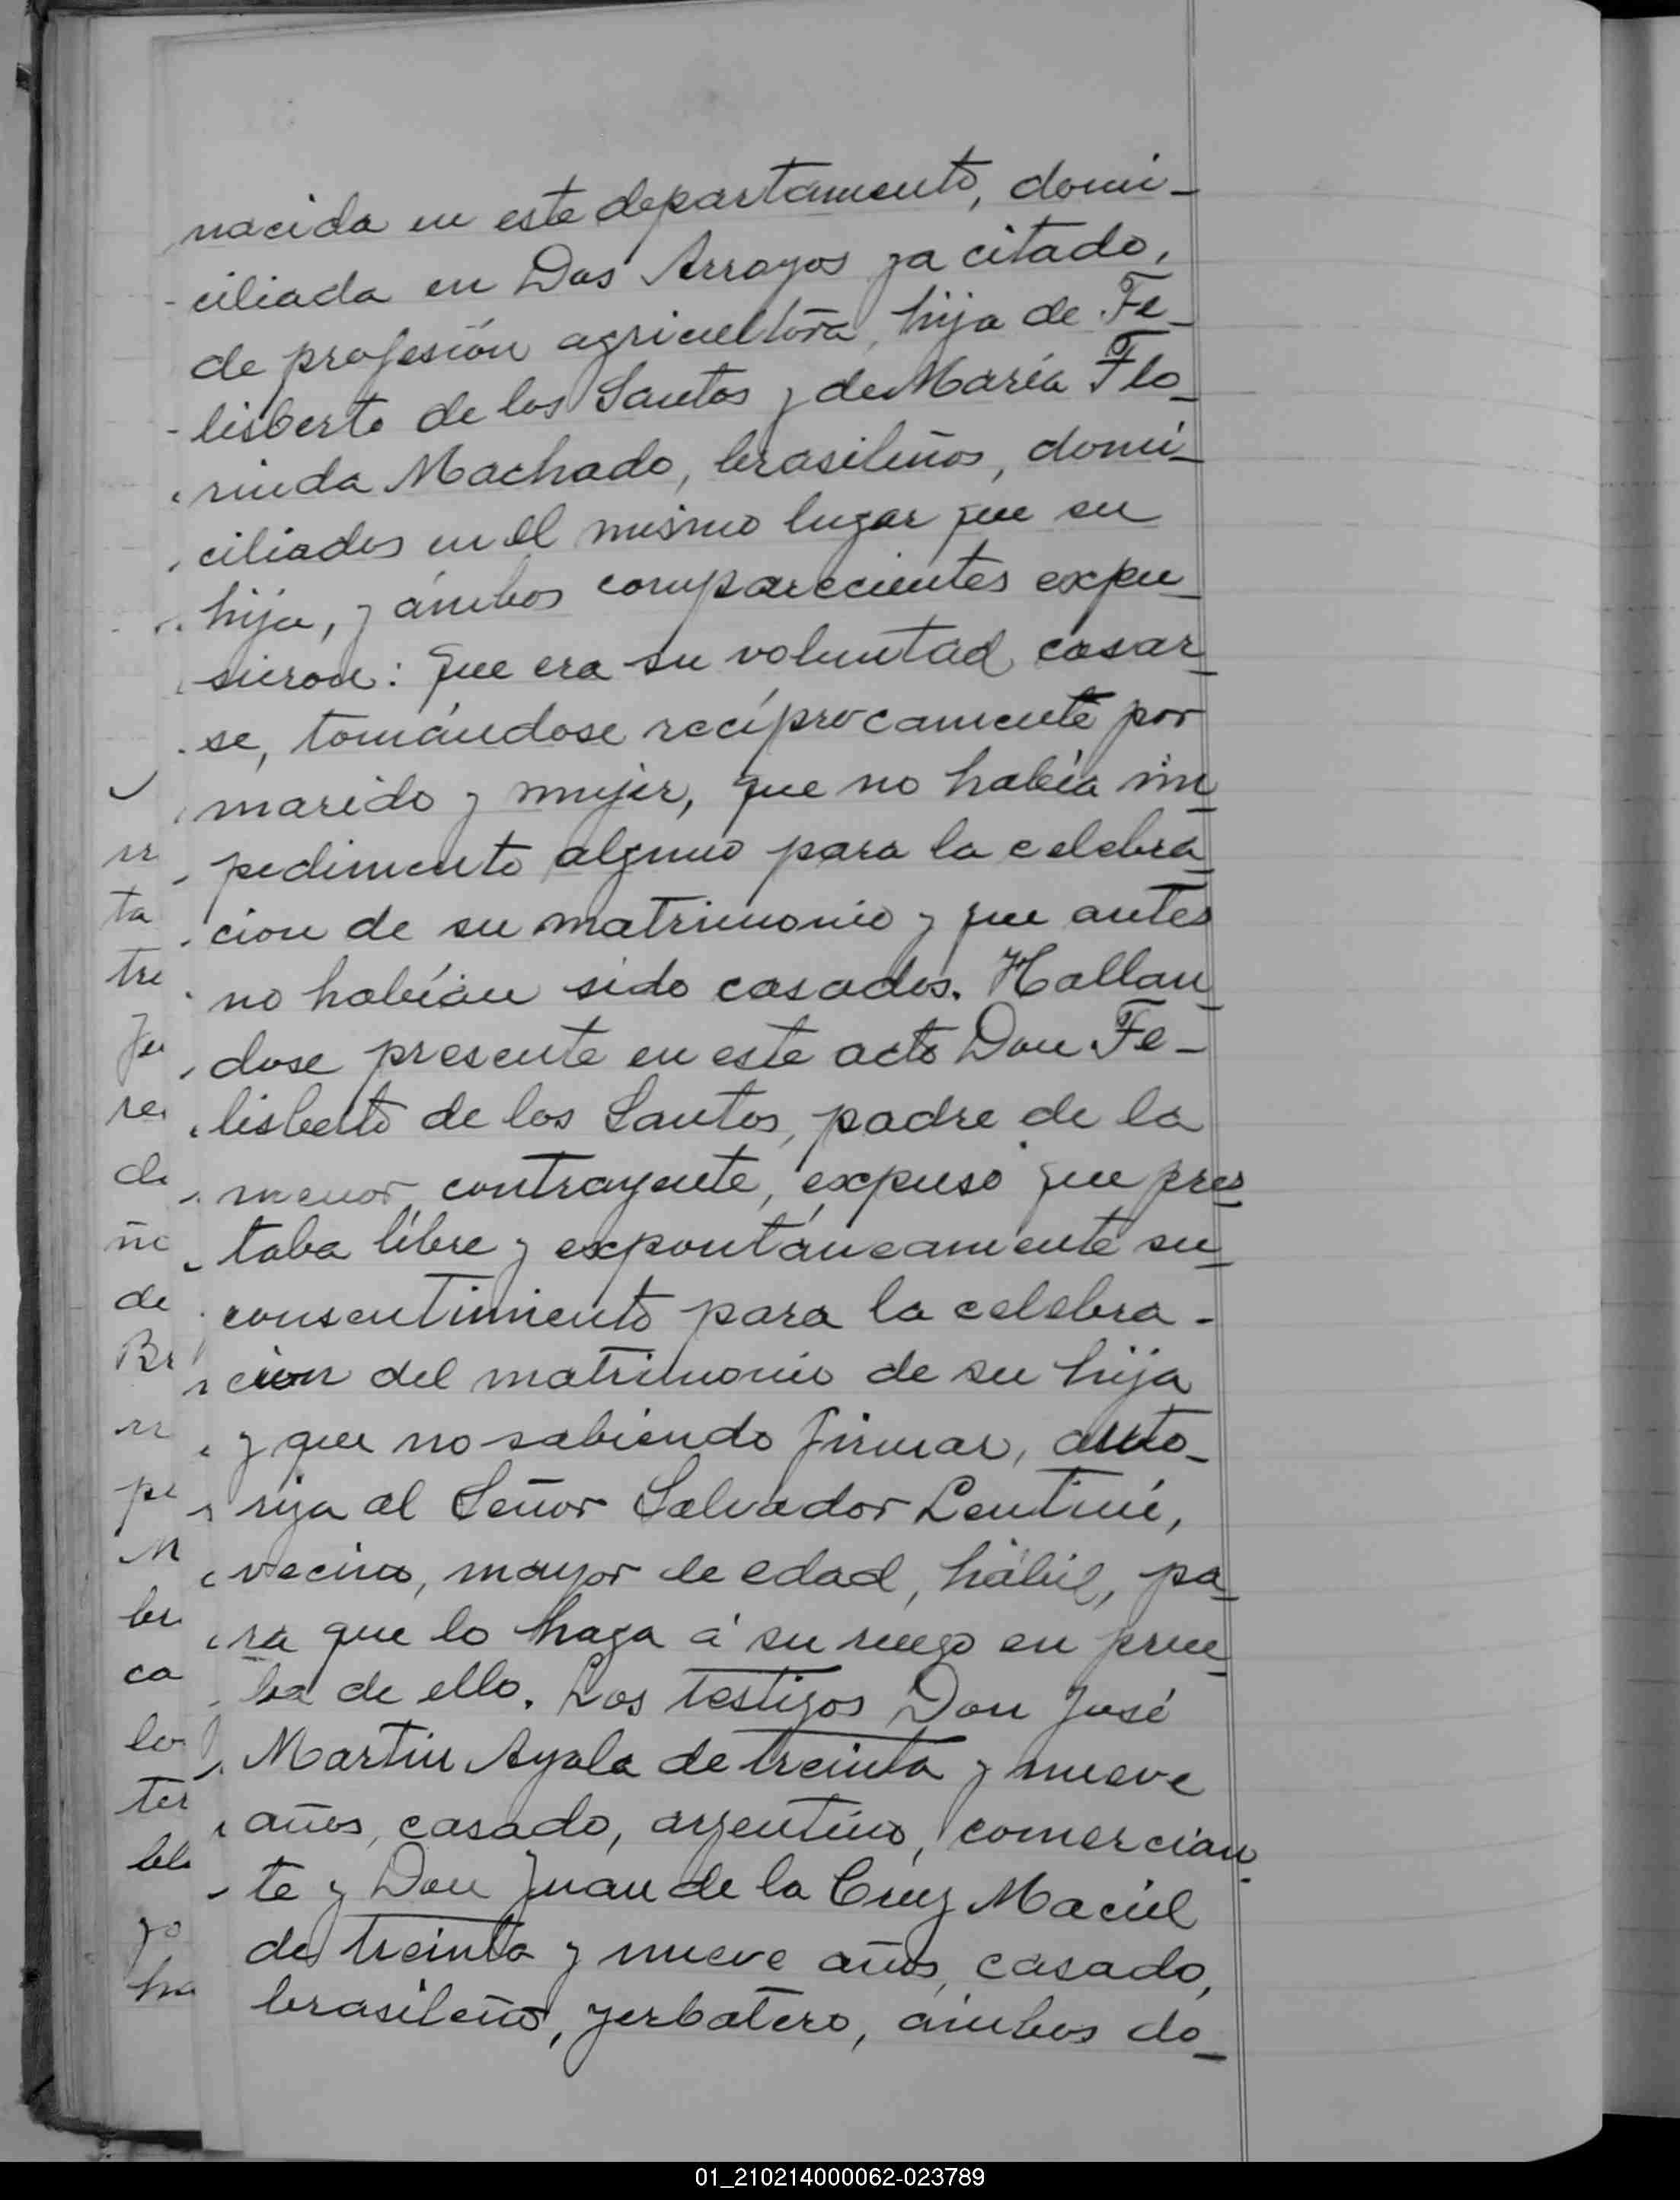 nacida en este departamento, domi-
ciliada en Dos Arroyos ya citado,
de profesión agricultora, hija de Fe-
lisberto de los Santos y de María Flo-
rinda Machado, brasileños, domi-
ciliados en el mismo lugar que su
hija, y ámbos comparecientes expu-
sieron: que era su voluntad casar-
se, tomándose recíprocamente por
marido y mujer, que no había im-
pedimento alguno para la celebra-
cion de su matrimonio y que antes
no habían sido casados. Hallan-
dose presente en este acto Don Fe-
lisberto de los Santos, padre de la
menor contrayente, expuso que pres-
taba libre y expontáneamente su
consentimiento para la celebra-
cion del matrimonio de su hija
y que no sabiendo firmar, auto-
riza al Señor Salvador Lentini,
vecino, mayor de edad, hábil, pa-
ra que lo haga á su ruego en prue-
ba de ello. Los testigos Don José
Martin Ayala de treinta y nueve
años, casado, argentino, comercian-
te y Don Juan de la Cruz Maciel
de treinta y nueve años, casado,
brasileño, yerbatero, ámbos do-
ta
tre
re
de
Br
pe
M
ca
lo
ter
ha
01_210214000062-023789